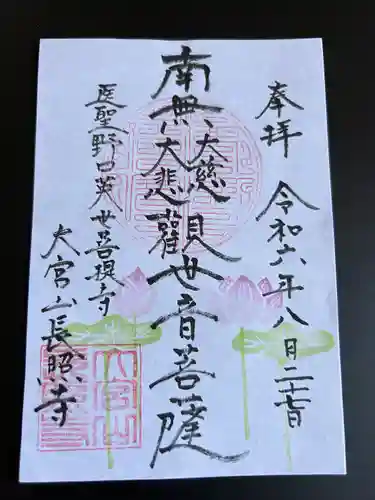 奉拝
令和六年八月二十七日
南無大慈
大悲観世音菩薩
医聖野口英世菩提寺
大宮山長照寺